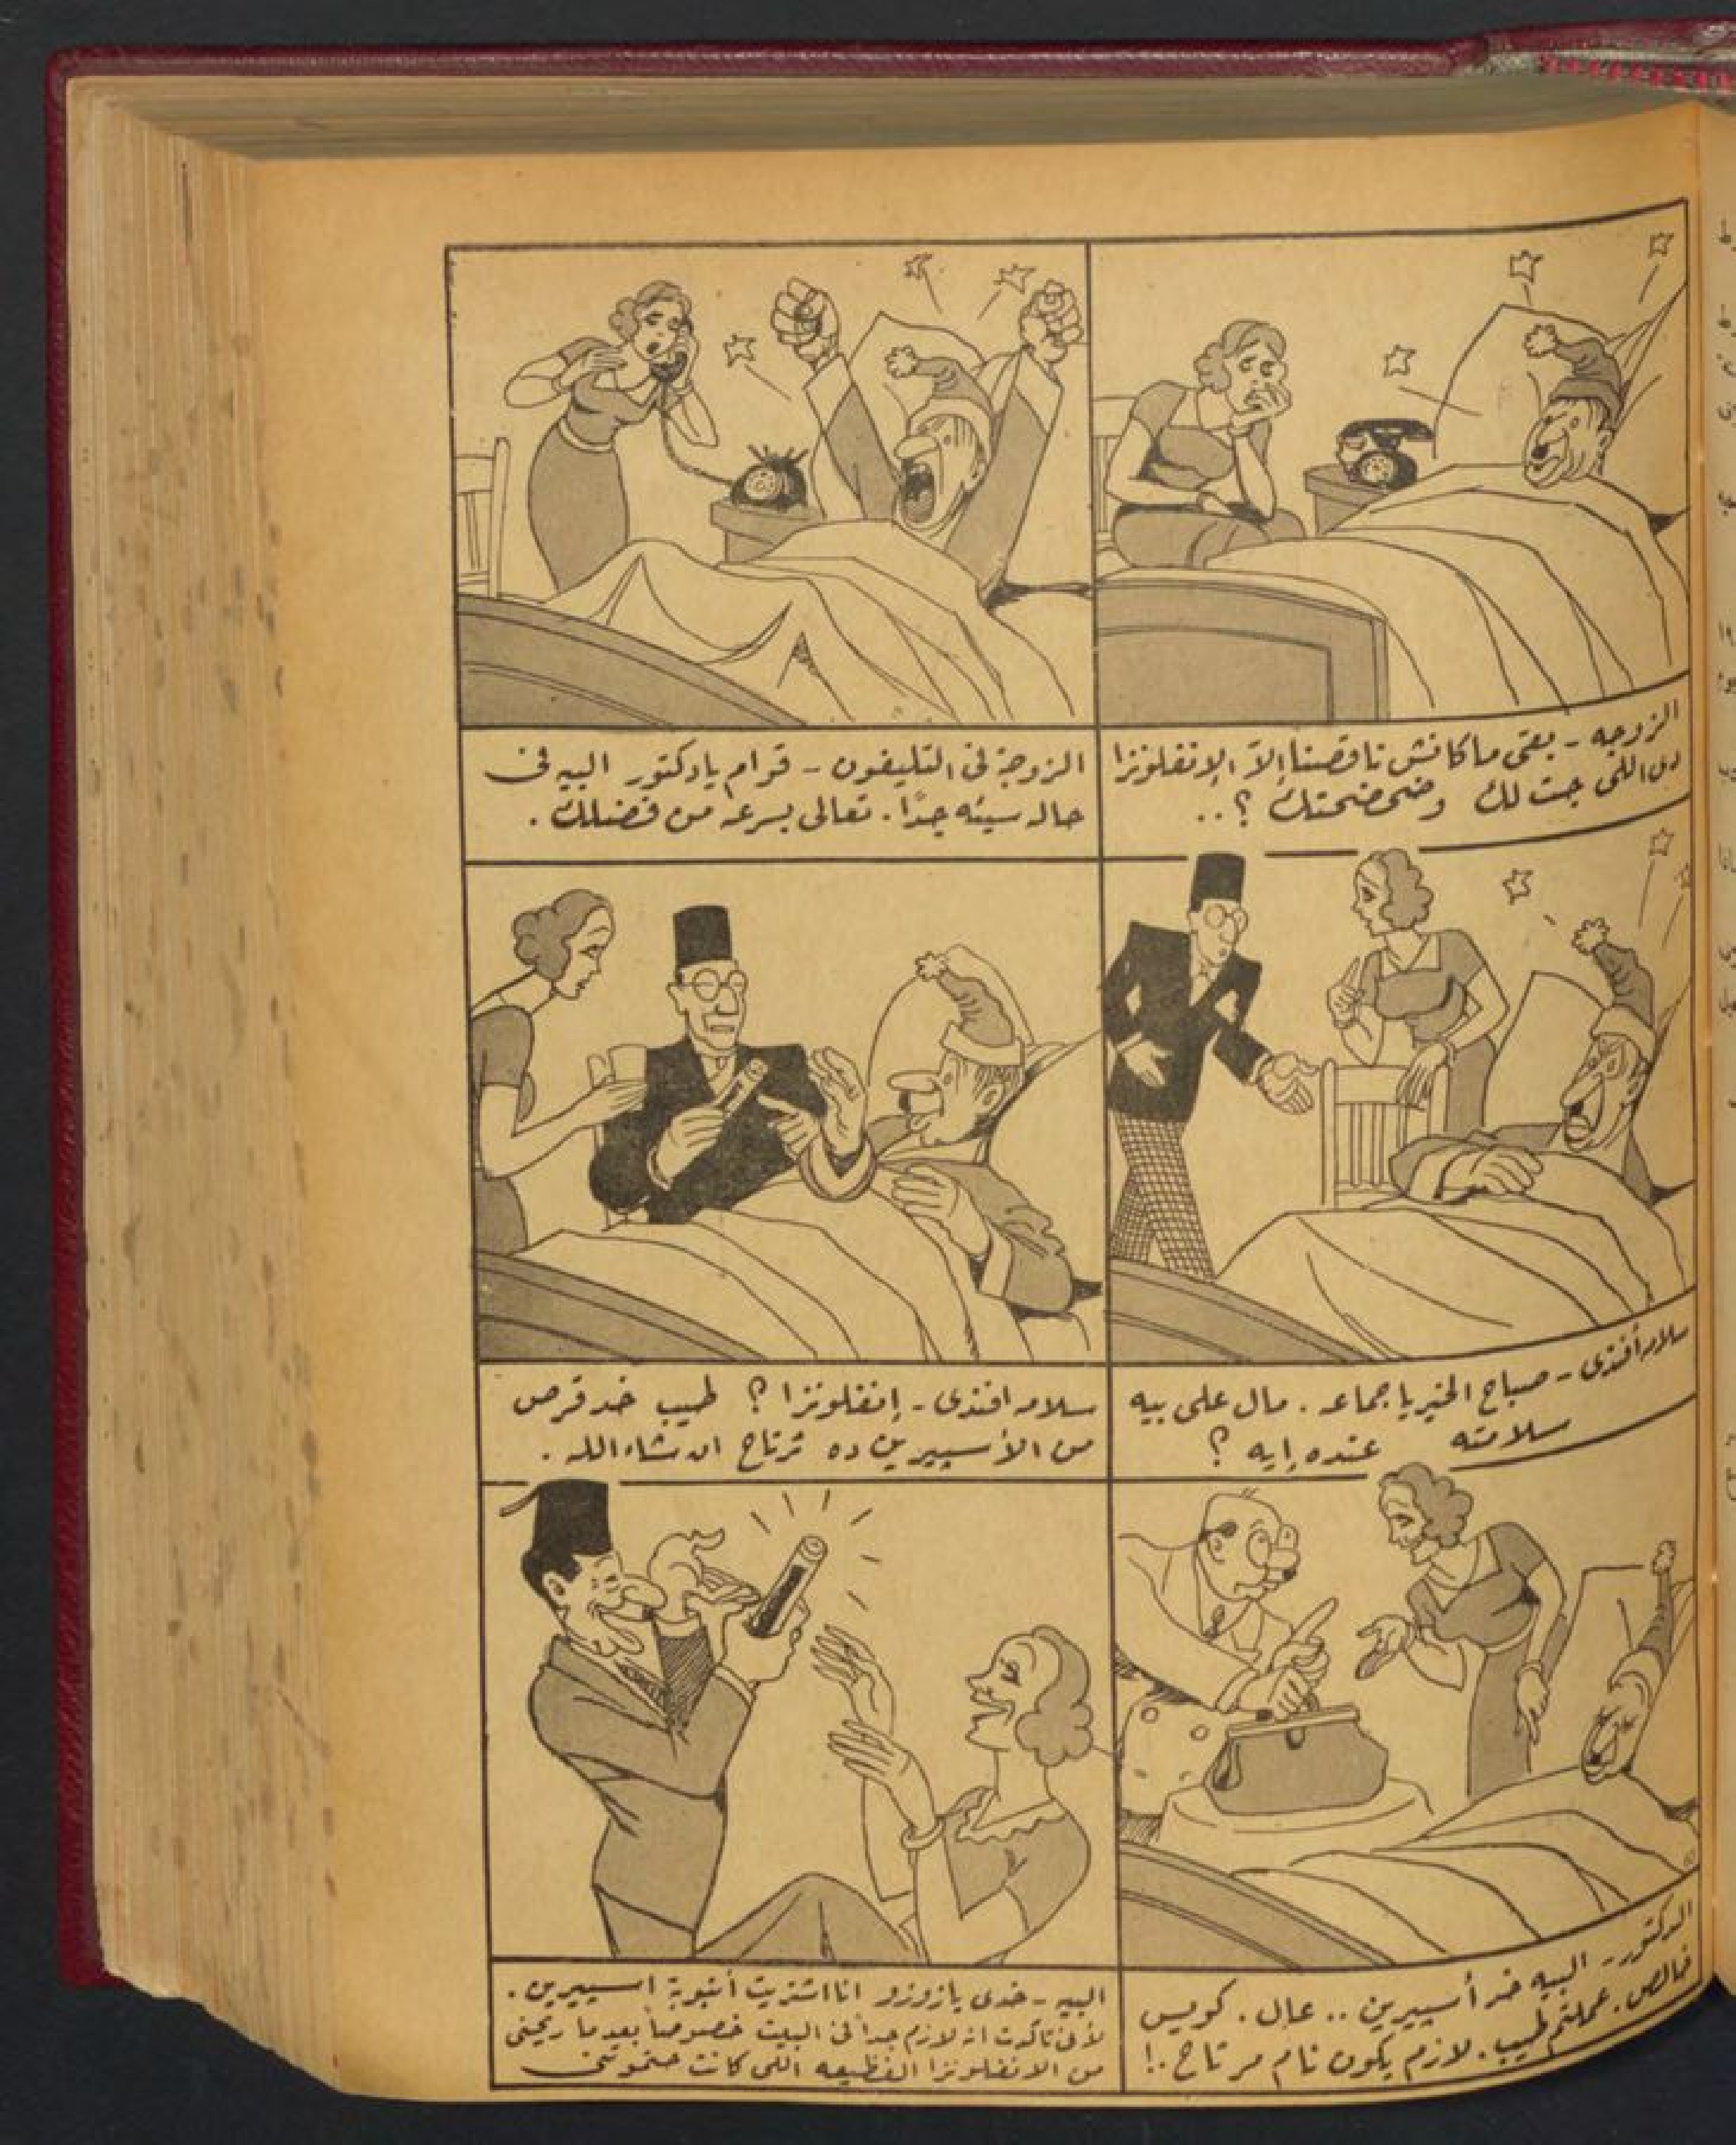 الزوجه - بقى ما كانش ناقصنا إلاّ الإنفلونزا
دى اللى جت لك وضحضحتك ؟ ..
الزوجة فى التليفون - قوام يا دكتور البيه فى
حاله سيئه جدًا . تعالى بسرعه من فضلك .
سلامه أفندى - صباح الخير يا جماعه . مال على بيه
سلامته عنده إيه ؟
سلامه افندى - إنفلونزا ؟ طيب خد قرص
من الأسبيرين ده ترتاح ان شاء الله .
الدكتور - البيه خد أسبيرين .. عال . كويس
خالص . عملتم طيب . لازم يكون نام مرتاح . !
البيه - خدى يا زوزو انا اشتريت أنبوبة اسبيرين .
لأنى تأكدت انه لازم جداً فى البيت خصوصاً بعد ما ريحنى
من الانفلونزا الفظيعه اللى كانت حتموتنى